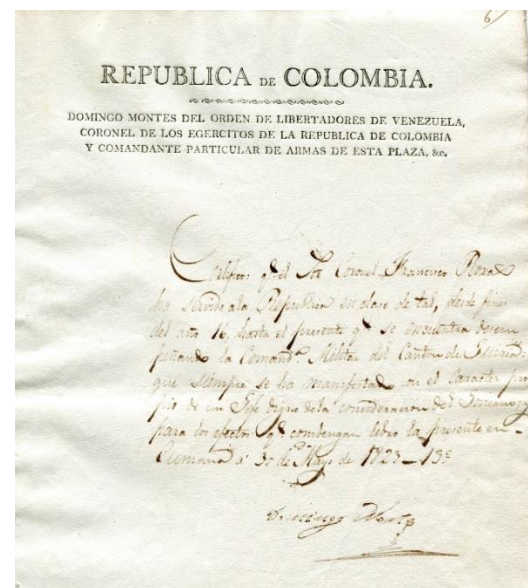 6
REPUBLICA DE COLOMBIA.
DOMINGO MONTES DEL ORDEN DE LIBERTADORES DE VENEZUELA,
CORONEL DE LOS EGERCITOS DE LA REPUBLICA DE COLOMBIA
Y COMANDANTE PARTICULAR DE ARMAS DE ESTA PLAZA, &c.
Certifico: qe. el Sor. Coronel Francisco
ha servido a la Republica en clase de tal, desde fines
del año 16, hasta el presente qe. se encuentra desem
peñando la Comanda. Militar del Canton de
que siempre se ha manifestado con el caracter pro
pio de un Gefe digno de la consideracion del Govierno, y
para los efectos qe. combengan libro la presente en
Cumaná á 30 de Mayo de 1823_13º
Domingo Montes